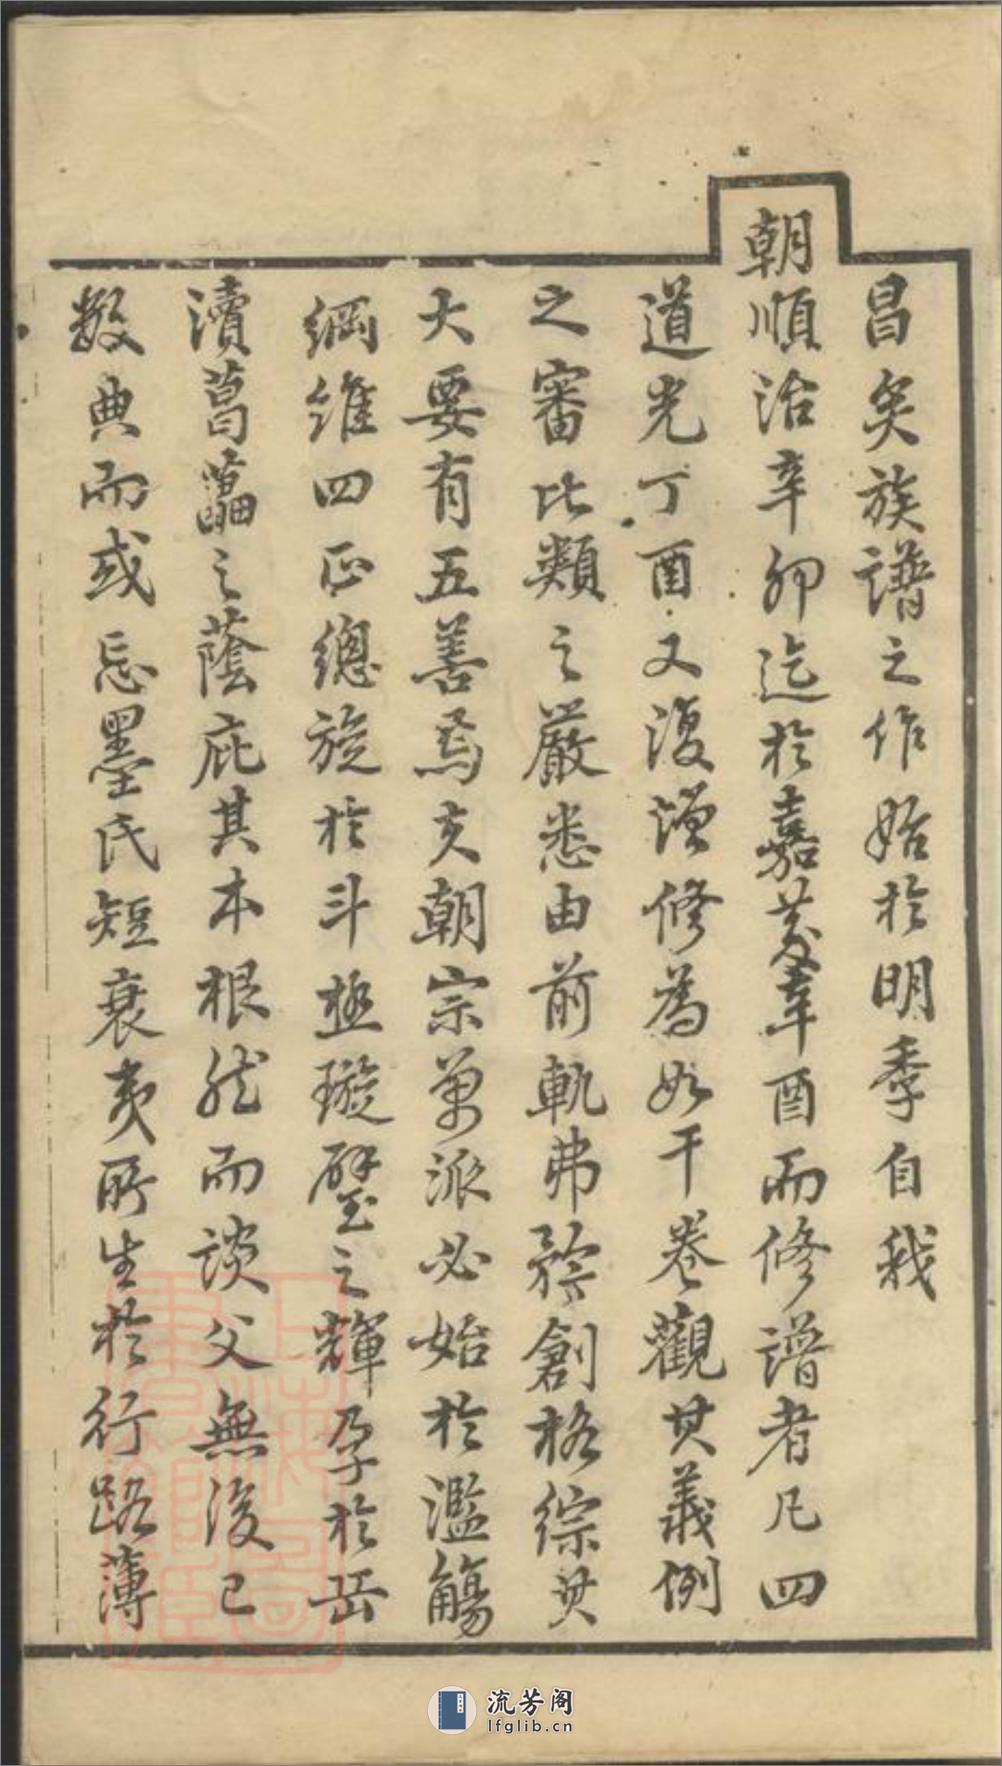 昌矣族譜之作始於明季自我
朝順治辛卯迄於嘉慶辛酉而修譜者凡四
道光丁酉又復增修為如干卷觀其義例
之審比類之嚴悉由前軌弗矜創格綜其
大要有五善焉夫朝宗萬派必始於濫觴
綱維四正總旋於斗極璇璧之輝孕於岳
瀆葛藟之蔭庇其本根然而談父無後已
數典而或忘墨氏短衰夷所生於行路薄
流芳阁
lfglib.cn